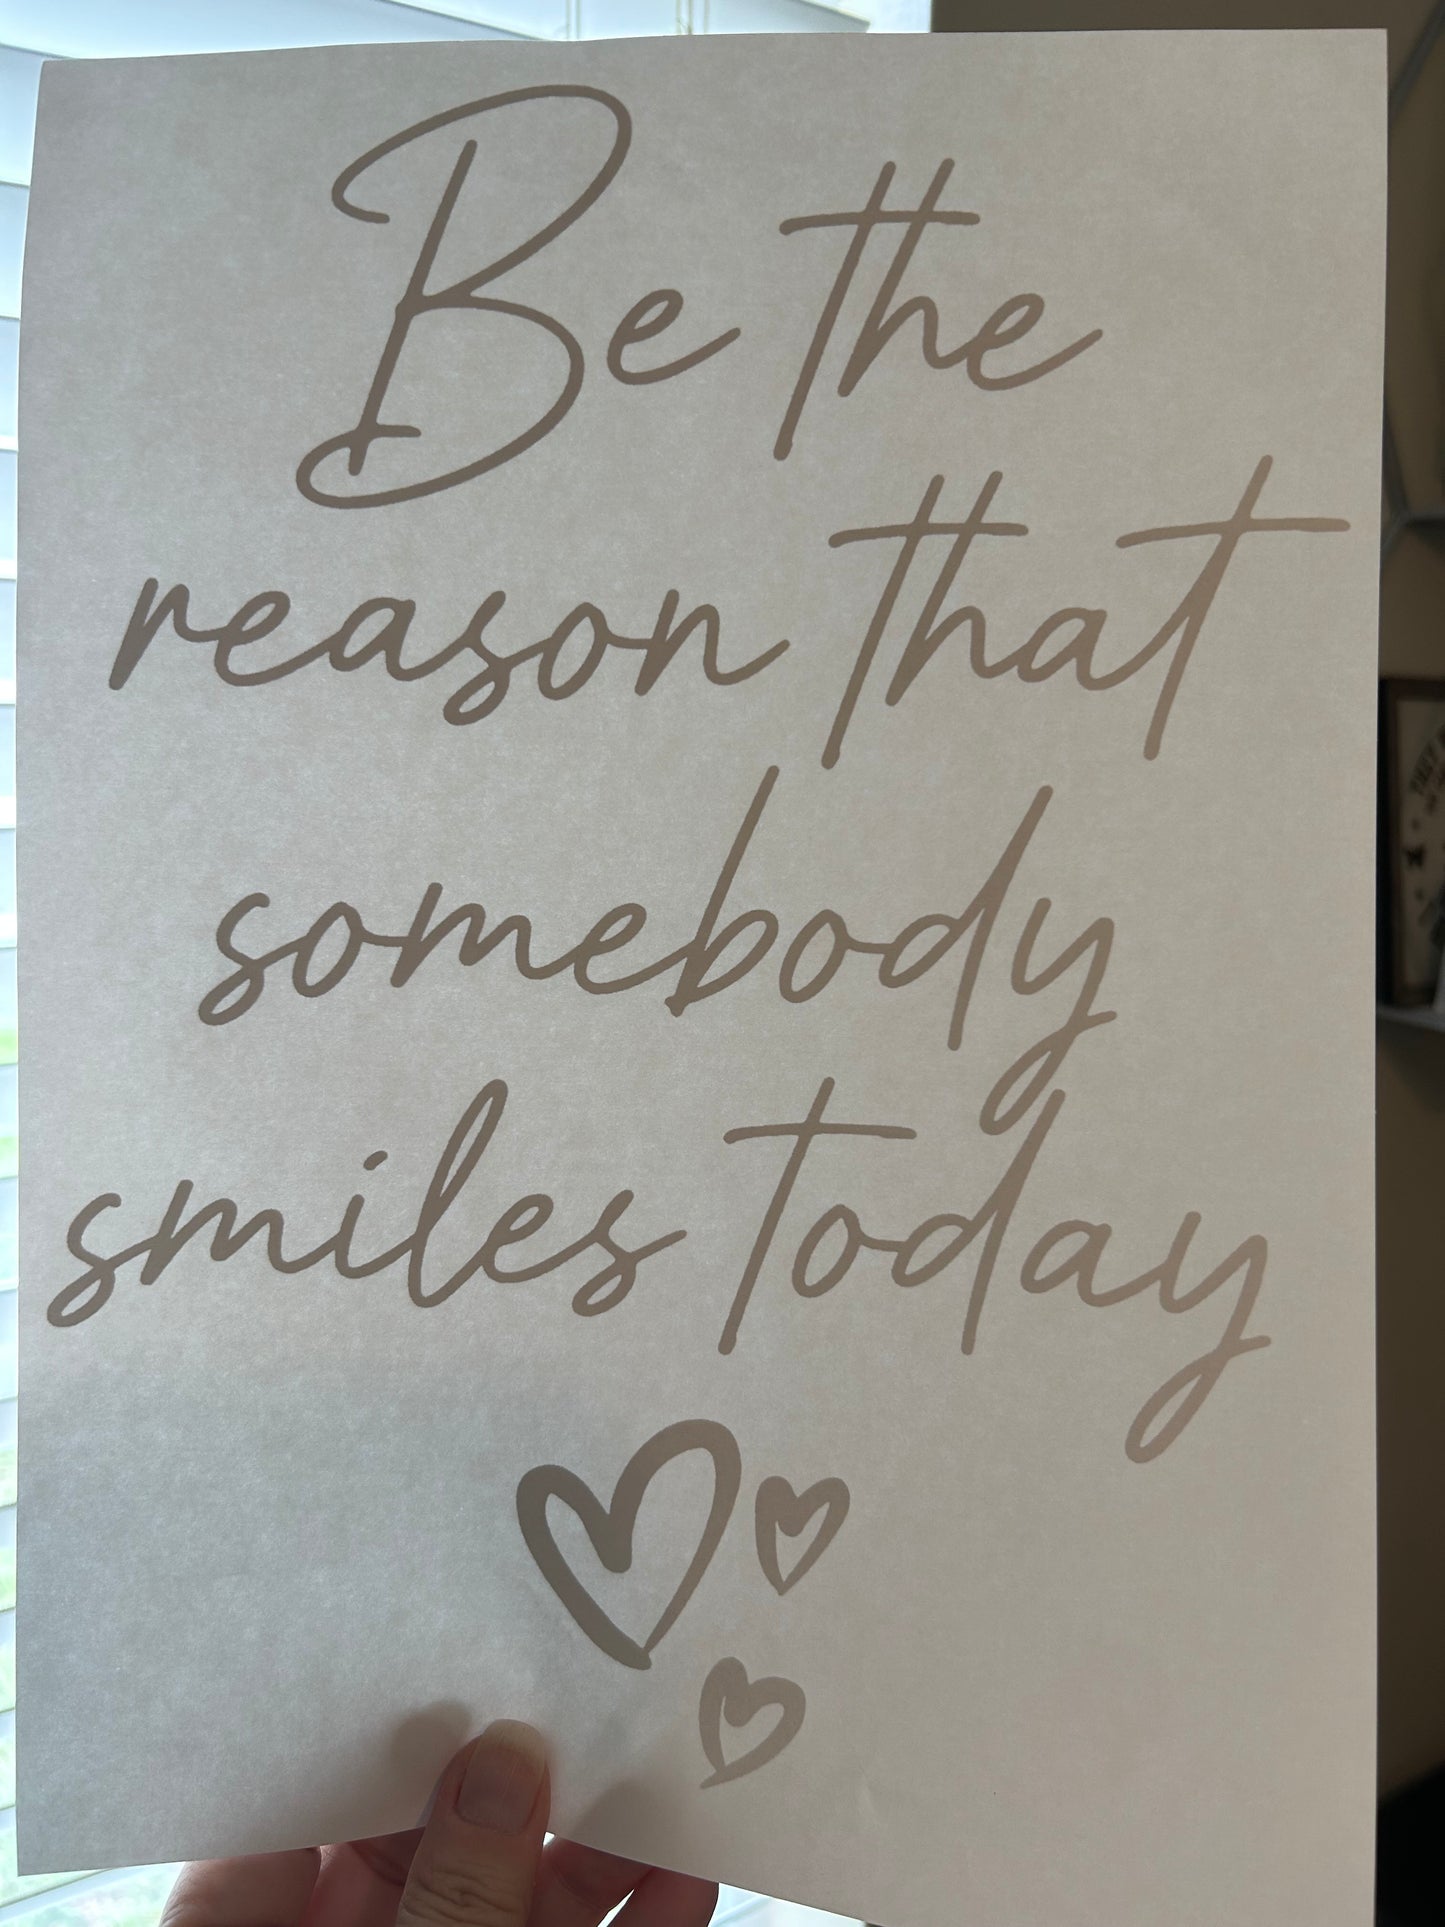 Be the
reason that
somebody
smiles today